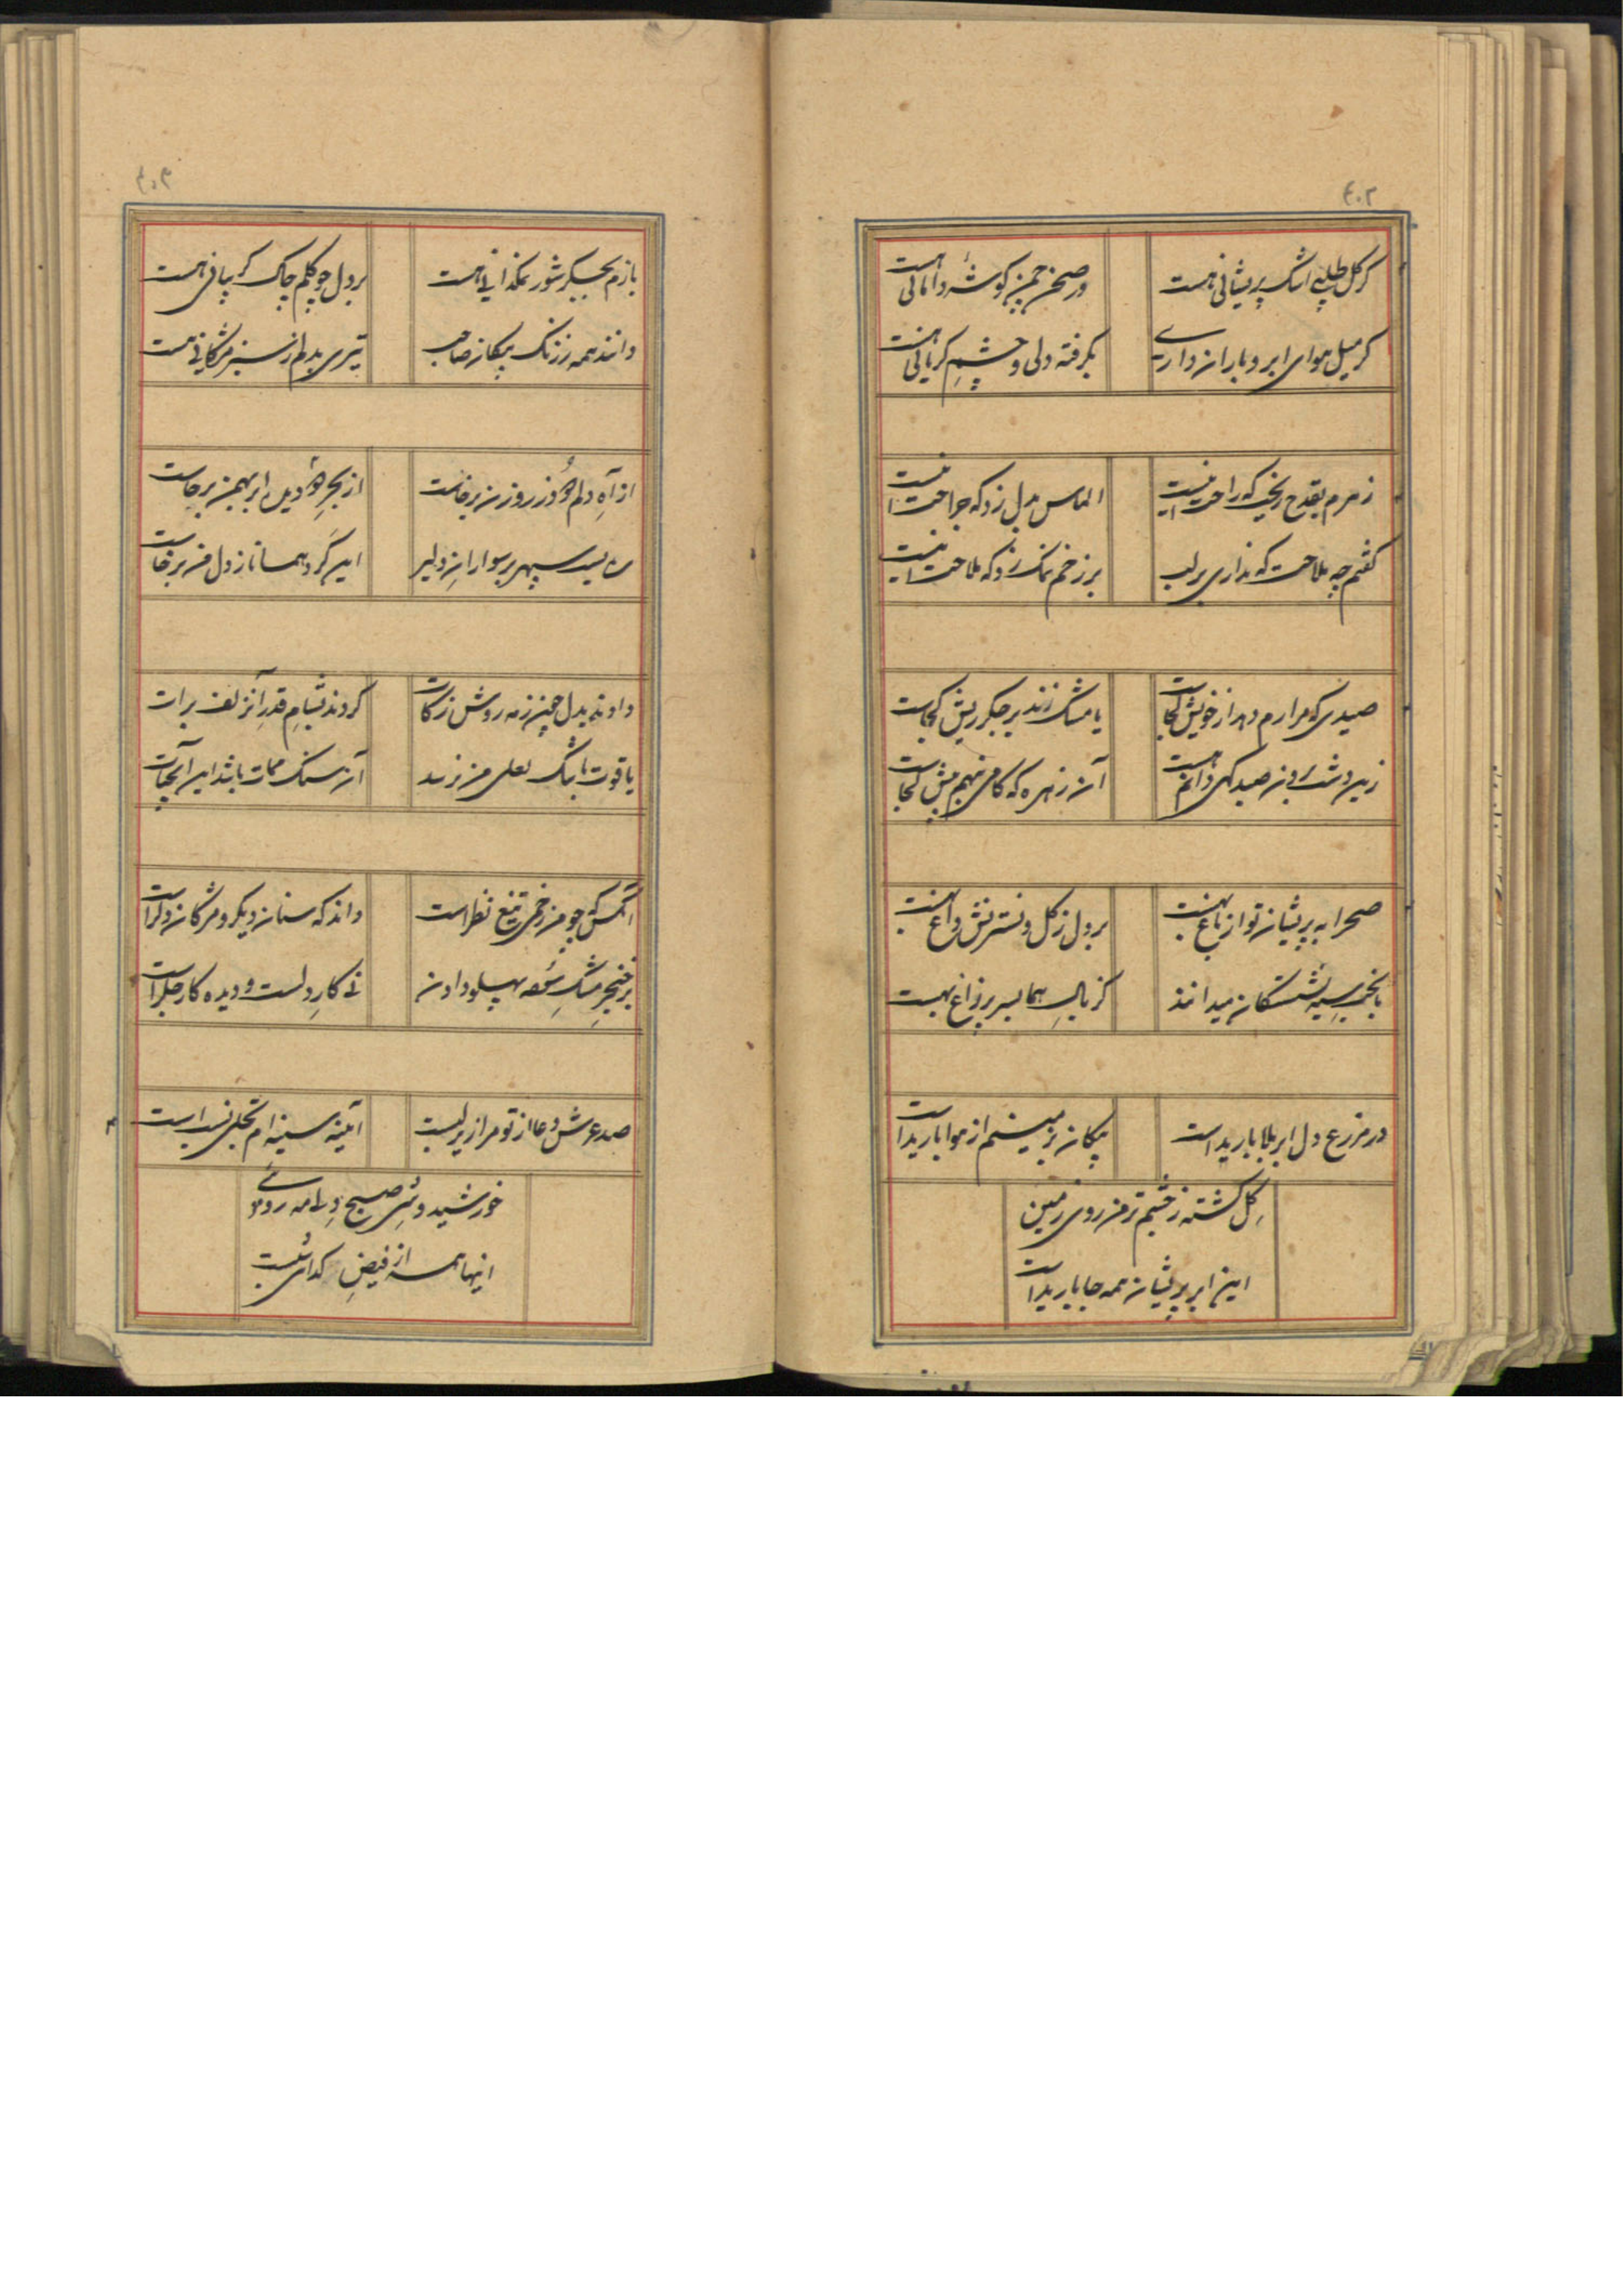 ۴۰۲
گر گل طلبی اشک پریشانی هست
در صحن چمن گوشه دامانی هست
گر میل هوای ابر و باران داری
بگرفته دلی و چشمِ گریانی هست
زهرم بقدح ریخت که راحت اینست
الماس بدل زد که جراحت اینست
گفتم چه ملاحت که نداری بر لب
بر زخم نمک زد که ملاحت اینست
صیدی که مرا رم دهد از خویش کجاست
یا مشک زند بر جگر ریش کجاست
زین دشت برون صید گهی دانم هست
آن زهره که گامی نهم پیش کجاست
صحرا به پریشان تو از باغ بهست
بر دل ز گل و نسترنش داغ بهست
بخت سیه نشستگان میدانند
کز بالِ هما بسر پر زاغ بهست
در مزرع دل ابر بلا باریداست
پیکان بزمینم از هوا باریداست
گِل گشته ز چشم تر من روی زمین
این ابر پریشان همه جا باریداست
۴۰۳
بازم بجگر شور نمکدانی هست
بر دل چو گلم چاک گریبانی هست
دانند همه ز رنگ پیکان صاحب
تیری بدلم ز سبز مژگانی هست
از آهِ دلم دود ز روزن برخاست
از بحرِ دو دیده ابر بهمن برخاست
رسید سپهر بر سوارانِ دلیر
این گَرد همانا ز دل من برخاست
دادند بدل چین ز مه روش زکات
کردند بشامِ قدر آنزلف برات
یاقوت باشک لعلی من نرسد
آن سنگ ممات باشد این آبحیات
آنکس که چو من زخمی تیغ نظر است
داند که سنان دیگر و مژگان دگر است
بر خنجرِ مشک سُوده پهلو دادن
نی کارِ دلست و دیده کار جگر است
صد عرش دعا از تو مرا زیر لبست
آئینه سینه‌ام تجلی نسب است
خورشید وشی صبح دلی مه روئی
اینها همه از فیضِ گدای شبست